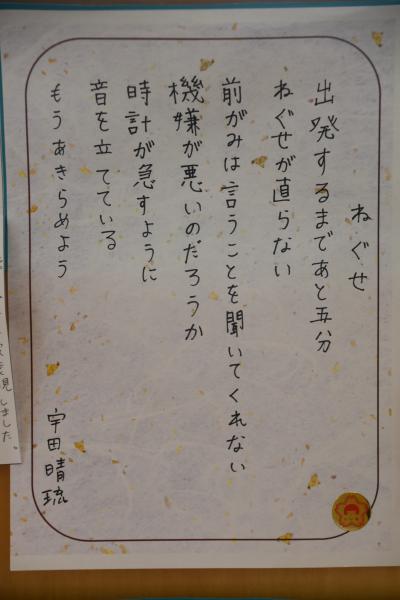 ねぐせ
出発するまであと五分
ねぐせが直らない
前がみは言うことを聞いてくれない
機嫌が悪いのだろうか
時計が急すように
音を立てている
もうあきらめよう
宇田晴琉
表現しました。